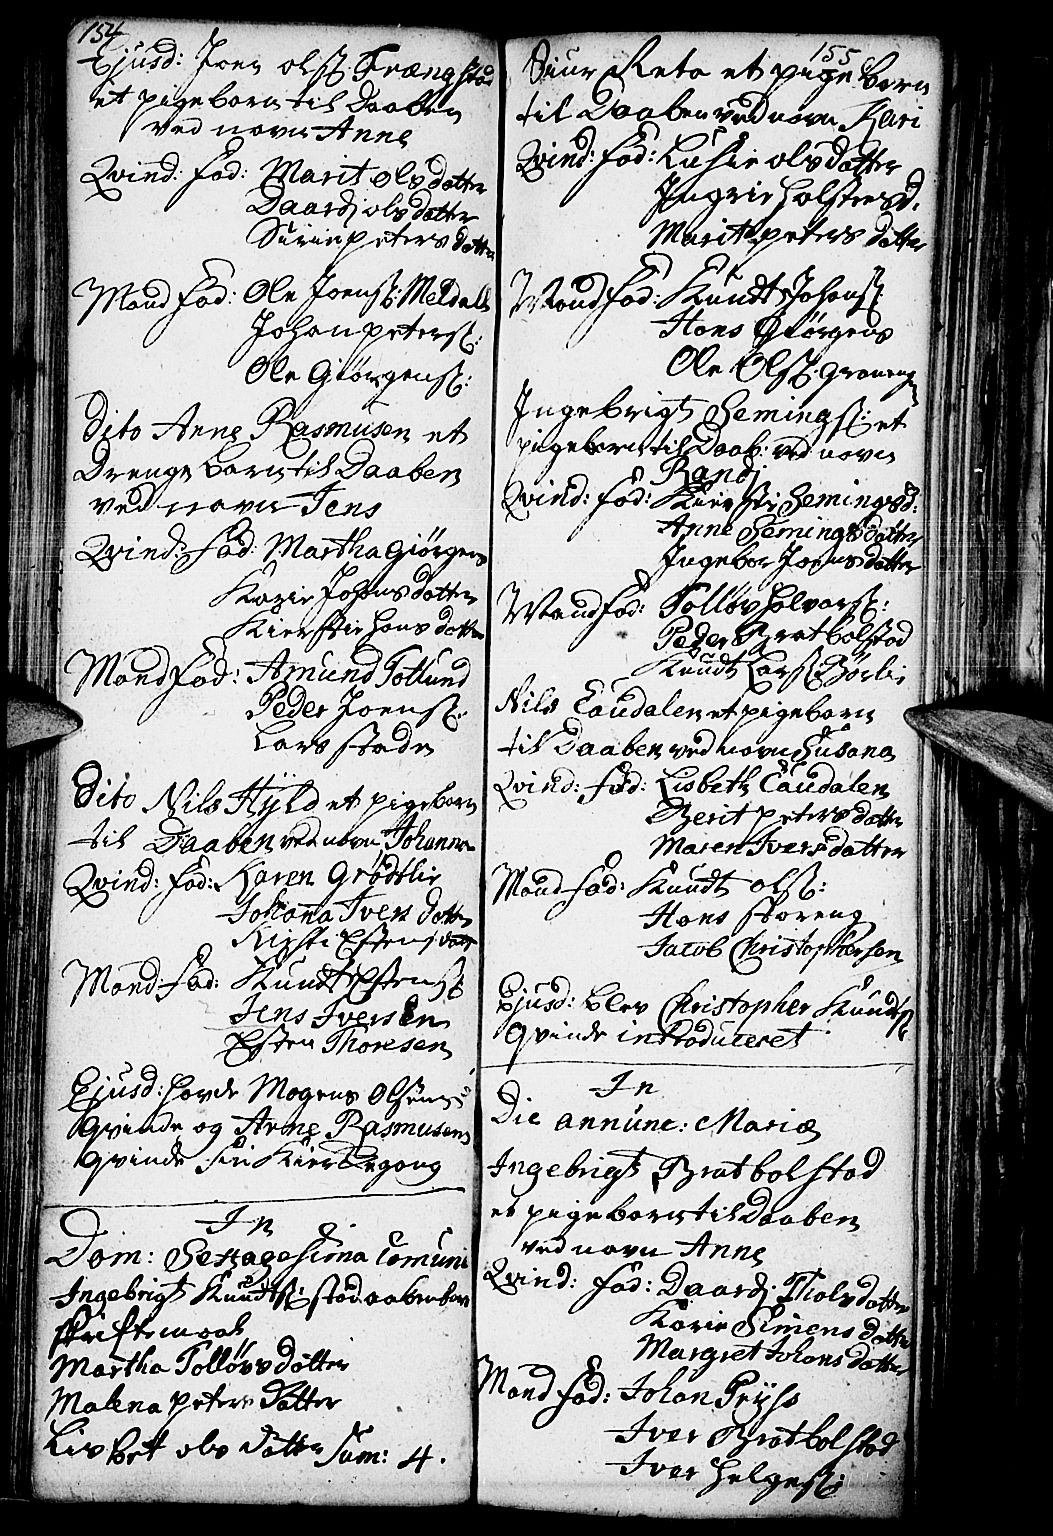 154
Ejusd: Joen olsz Frængstad
et pigebarn til Daaben
ved navn Anne
Qvind: fad: Marit olsdatter
Daardj olsdatter
Sirin petersdatter
Mand fad: Ole Joensz: Meldall
Johan petersz:
Ole Giörgensz:
Dito Anne Rasmusen et
Drenge barn til Daaben
ved navn Jens
Qvind: fad: Martha Giörgens
Kazie Johansdatter
Kierstie hansdatter
Mand fad: Amund Tollund
Peder Joensz:
Lars stade
Dito Nils Hyld et pigebarn
til Daaben ved navn Johanna
Qvind: fad: Karen Grödtlie
Johana Ivers datter
Kirsti Estensdatter
Mand fad: Knudt Estensz
Jens Iversen
Esten Thoresen
Ejusd: havde Mogens Olsens
qvinde og Arne Rasmusens
qvinde sin Kierkegang
In
Dom: Sexagesima Comuni
Ingebrigt Knudtsz: stod aabenbare
skriftemaal
Martha Tollövsdatter
Malena petersdatter
Lisbett olsdatter Sum: 4.
155
Siur Reta et pigebarn
til Daaben ved navn Kari
Qvind: fad: Lusie olsdatter
Ingrie holstensd:
Marit petersdatter
Mand fad: Knudt Johansz:
Hans Giörgens
Ole Olsz. grauneng
Ingebrigt Hemingsz: et
pigebarn til Daab: ved navn
Randj
Qvind: fad: Kierstie Hemingsd:
Anne Hemingsdatter
Ingebor Joensdatter
Mand fad: Tollöv halvorsz:
Peder Bratbolstad
Knudt Larsz Börli
Nils Caudalen et pigebarn
til Daaben ved navn Susana
Qvind: fad: Lisbeth Caudalen
Berit petersdatter
Maren Iversdatter
Mand fad: Knudt olsz:
Hans storeng
Jacob Christophersen
Ejusd: blev Christopher Knudsz
qvinde introduceret
In
Die annunc: Mariæ
Ingebrigt Bratbolstad
et pigebarn til Daaben
ved navn Anne
Qvind: fad: Daardj Tholvdatter
Karie Simensdatter
Margret Johansdatter
Mand fad: Johan Pryss
Iver Bratbolstad
Iver helgesz: